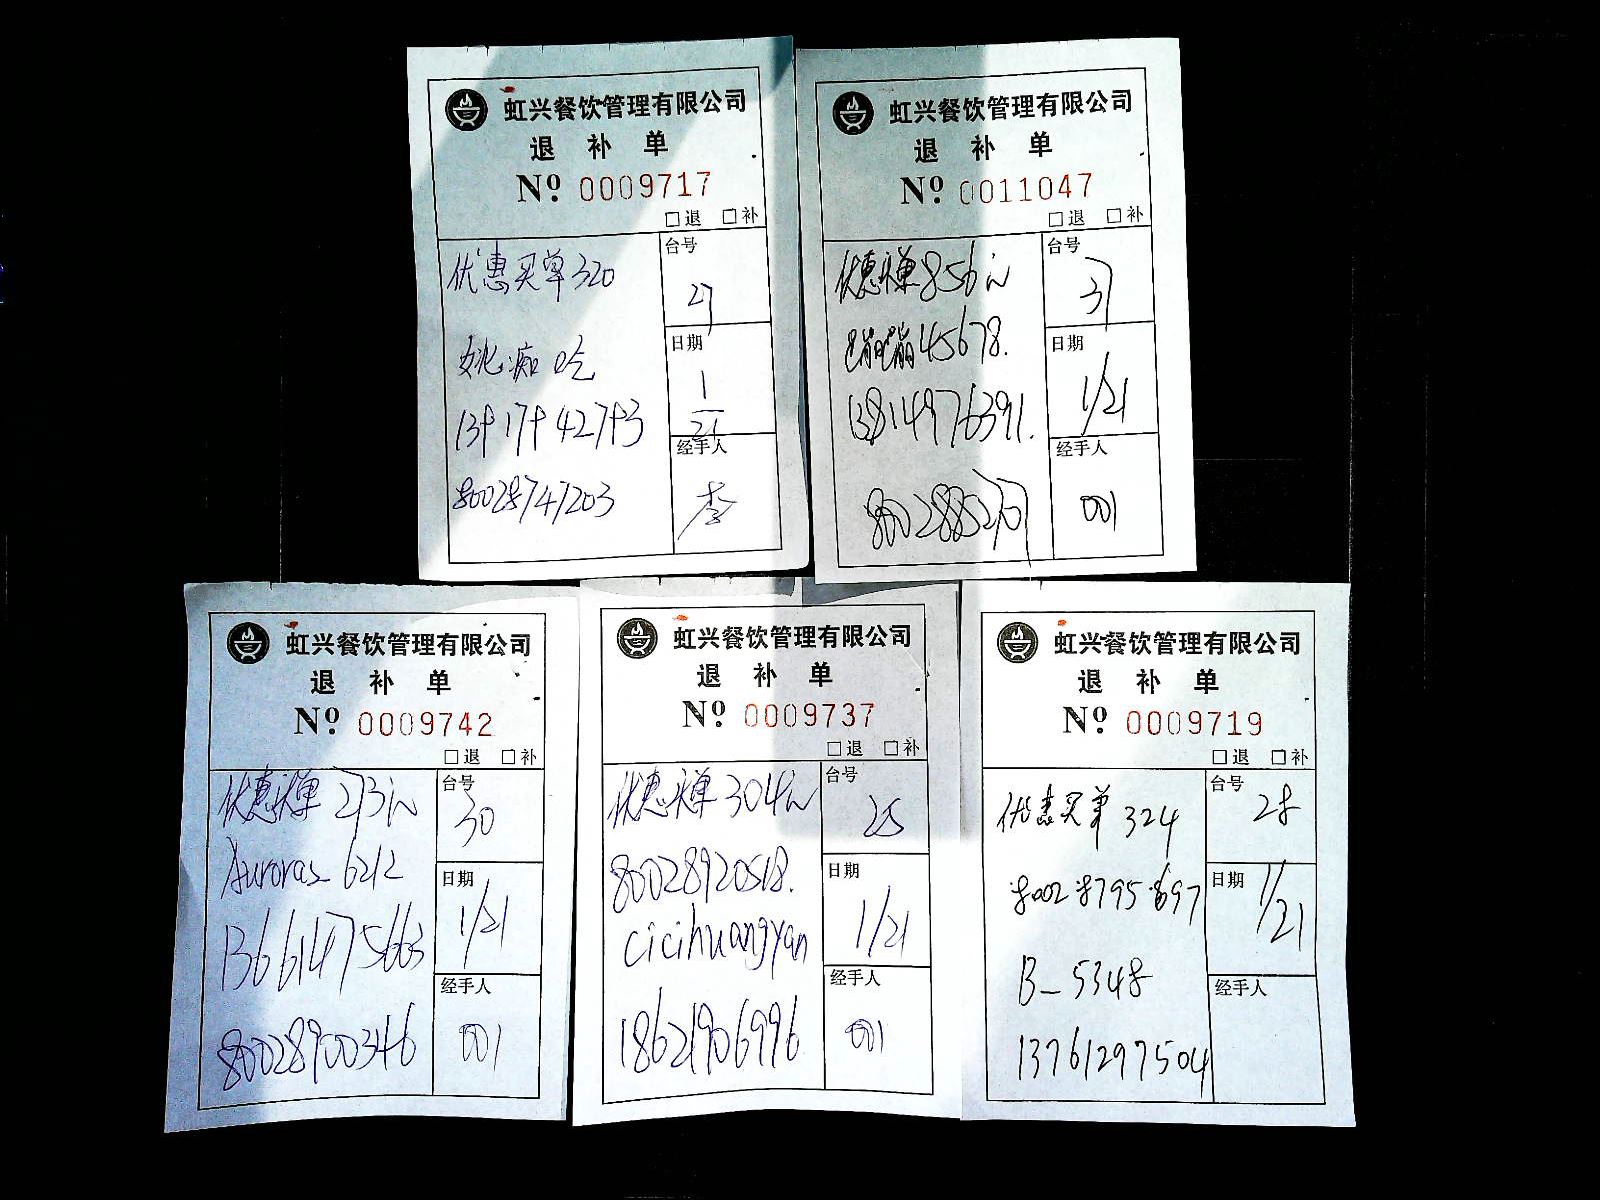 虹兴餐饮管理有限公司
退 补 单
Nº 0009717
□退 □补
优惠买单320
台号
27
日期
1/21
13817842783
80028747203
经手人
李
虹兴餐饮管理有限公司
退 补 单
Nº 0011047
□退 □补
优惠买单856元
台号
31
蹦蹦45678.
日期
1/21
13814976391.
经手人
001
虹兴餐饮管理有限公司
退 补 单
Nº 0009742
□退 □补
优惠买单273元
台号
30
Auroras_6212
日期
1/21
13661475663
80028900346
经手人
001
虹兴餐饮管理有限公司
退 补 单
Nº 0009737
□退 □补
优惠买单304元
台号
25
80028920518.
日期
1/21
cicihuangyan
18621906996
经手人
001
虹兴餐饮管理有限公司
退 补 单
Nº 0009719
□退 □补
优惠买单 324
台号
28
80028795697
日期
1/21
B_5348
13761297504
经手人